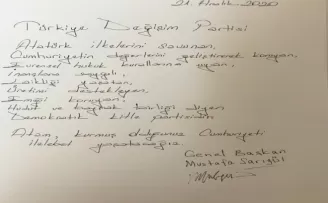 21 Aralık 2020
Türkiye Değişim Partisi
Atatürk ilkelerini savunan,
Cumhuriyetin değerlerini geliştirerek koruyan,
Evrensel hukuk kurallarına uyan,
inançlara saygılı,
Laikliği yaşatan,
Üretimi destekleyen,
koruyan,
ve bayrak birliği diyen
Demokratik kitle partisidir
Atam, kurmuş olduğunuz Cumhuriyeti
ilelebet yaşatacağız
Genel Başkan
Mustafa Sarıgül